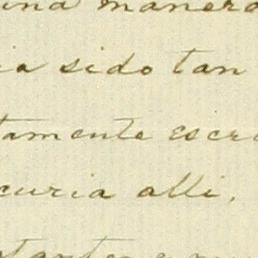 una manera
ia sido tan
tamente escru
curia alli.